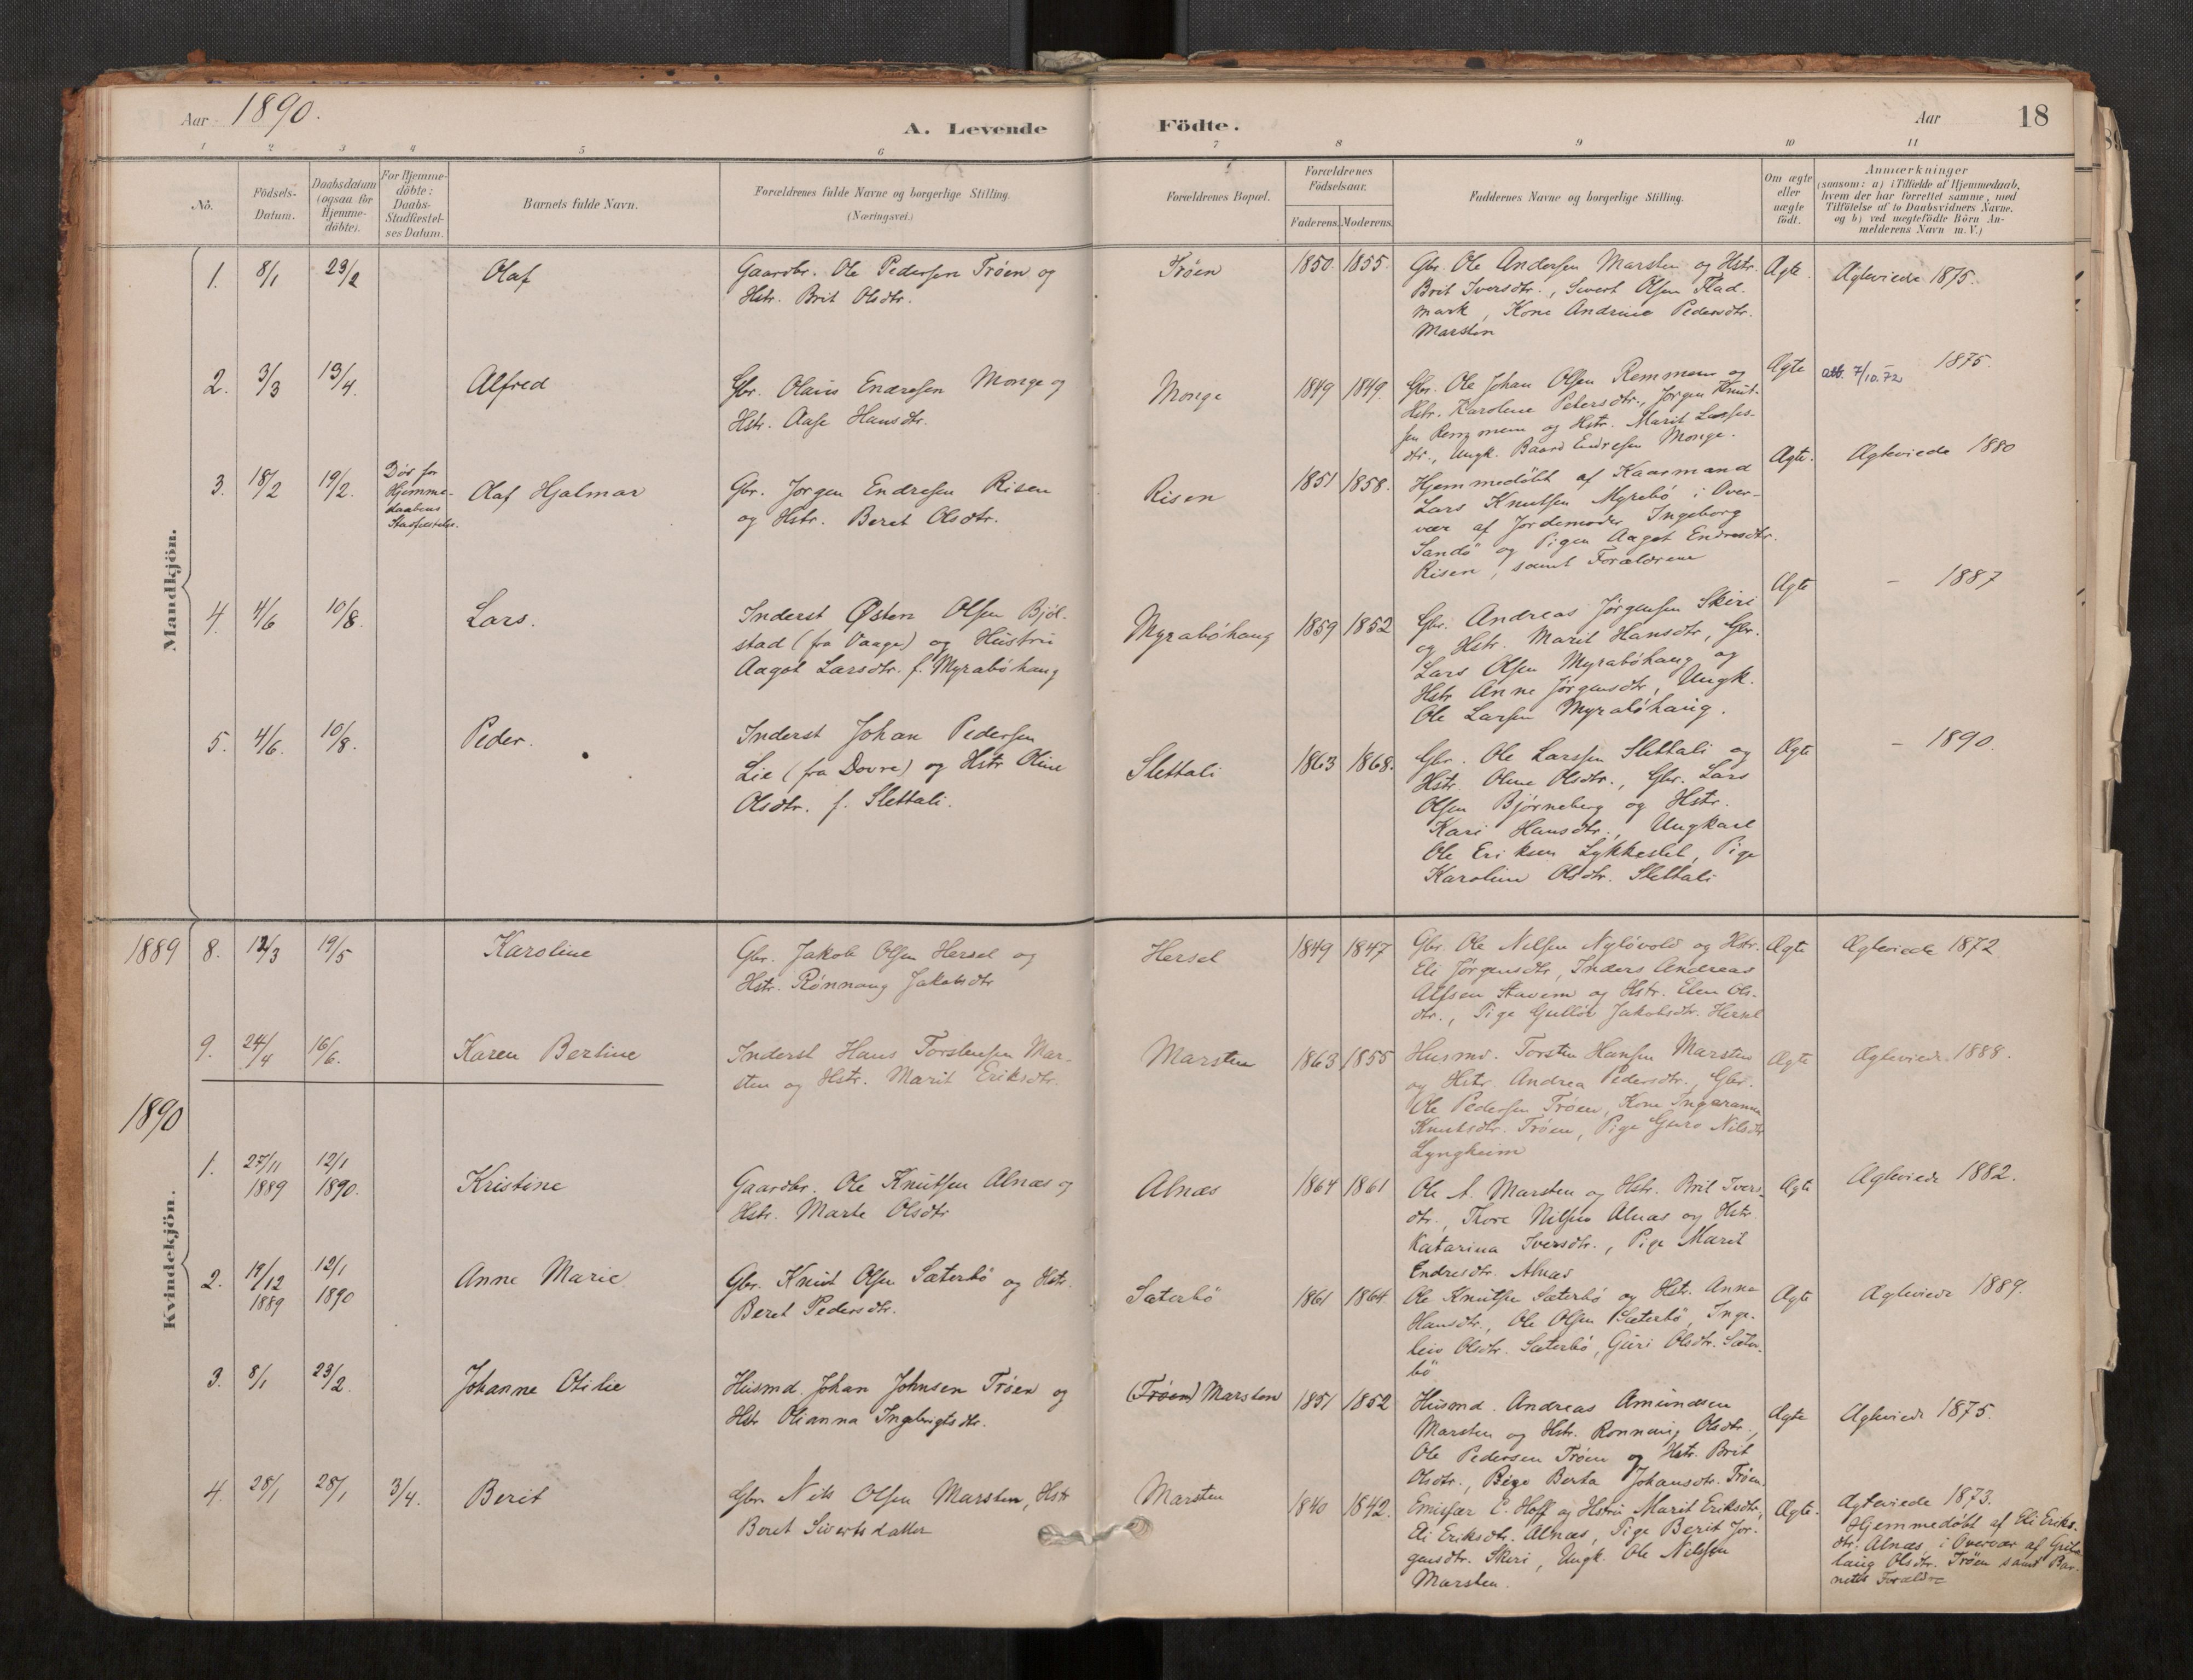 Aar 1890.
A. Levende Födte.
Aar 18
1 2 3 4 5 6 7 8 9 10 11
No.
Födsels-Datum.
Daabsdatum (ogsaa for Hjemmedöbte).
For Hjemmedöbte: Daabs-Stadfæstelses Datum.
Barnets fulde Navn.
Forældrenes fulde Navne og borgerlige Stilling.
(Næringsvei.)
Forældrenes Bopæl.
Forældrenes Födselsaar.
Faderens. Moderens.
Faddernes Navne og borgerlige Stilling.
Om ægte eller uægte födt.
Anmærkninger
(saasom: a) i Tilfælde af Hjemmedaab, hvem der har forrettet samme, med Tilföielse af to Daabsvidners Navne, og b) ved uægtefödte Börn Anmelderens Navn m. V.)
Mandkjön.
1. 8/1 23/2 Olaf
Gaardbr. Ole Pedersen Trøen og
Hstr. Brit Olsdtr.
Trøen 1850. 1855.
Gbr. Ole Andersen Marsten og Hstr.
Brit Iversdtr., Sivert Olsen Flad-
mark, Kone Andrine Pedersdtr.
Marsten
Ægte. Ægteviede 1875.
2. 3/3 13/4. Alfred
Gbr. Olaus Endresen Monge og
Hstr. Aase Hansdtr.
Monge 1849 1849.
Gbr. Ole Johan Olsen Remmem og
Hstr. Karoline Petersdtr., Jørgen Knut-
sen Remmem og Hstr. Marit Lasses-
dtr., Ungk. Baard Endresen Monge.
Ægte att. 7/10.72 – 1875.
3. 18/2 19/2. Død før
Hjemme-
daabens
Stadfæstelse.
Olaf Hjalmar
Gbr. Jørgen Endresen Risen
og Hstr. Beret Olsdtr.
Risen 1851 1858.
Hjemmedøbt af Kaarmand
Lars Knutsen Myrebö i Over-
vær af Jordemoder Ingeborg
Sandö og Pigen Aagot Endresdtr.
Risen, samt Forældrene
Ægte. Ægteviede 1880
4. 4/6 10/8. Lars.
Inderst Østen Olsen Bjöl-
stad (fra Vaage) og Hustru
Aagot Larsdtr. f. Myraböhaug
Myrabóhaug 1859 1852
Gbr. Andreas Jørgensen Skiri
og Hstr. Marit Hansdtr, Gbr.
Lars Olsen Myrabóhaug og
Hstr Anne Jørgensdtr, Ungk.
Ole Larsen Myrabóhaug.
Ægte – 1887
5. 4/6. 10/8. Peder.
Inderst Johan Pedersen
Lie (fra Dovre) og Hstr Oline
Olsdtr. f. Slettali.
Slettali 1863 1868.
Gbr. Ole Larssen Slettali og
Hstr. Oline Olsdtr., Gbr. Lars
Olsen Bjørneberg og Hstr.
Kari Hansdtr., Ungkarl
Ole Eriksen Lykkeslet, Pige
Karoline Olsdtr. Slettali
Ægte – 1890.
Kvindekjön.
1889 8. 12/3 19/5 Karoline
Gbr. Jakob Olsen Hersel og
Hstr. Rønnaug Jakobsdtr
Hersel 1849 1847
Gbr. Ole Nilsen Nylóvold og Hstr.
Eli Jørgensdtr, Inders Andreas
Alfsen Stavem og Hstr. Elen Ols-
dtr., Pige Gullör Jakobsdtr. Hersel
Ægte Ægteviede 1872
9. 24/4 16/6. Karen Bertine
Inderst Hans Torstensen Mar-
sten og Hstr. Marit Eriksdtr.
Marsten 1863 1855
Husmd. Torsten Hansen Marsten
og Hstr. Andrea Pedersdtr., Gbr.
Ole Pedersen Trøen, Kone Ingeranna
Knutsdtr. Trøen, Pige Guro Nilsdtr
Lyngheim
Ægte Ægteviede 1888.
1890
1. 27/11 1889 12/1 1890. Kristine
Gaardbr. Ole Knutsen Alnæs og
Hstr. Marte Olsdtr
Alnæs 1864 1861
Ole A. Marsten og Hstr. Brit Ivers-
dtr., Thore Nilsen Alnæs og Hstr.
Katarina Iversdtr., Pige Marit
Endresdtr. Alnæs
Ægte Ægteviede 1882.
2. 19/12 1889 12/1 1890 Anne Marie
Gbr. Knut Olsen Sæterbö og Hstr.
Beret Pedersdtr.
Sæterbö 1861 1864.
Ole Knutsen Sæterbö og Hstr. Anne
Hansdtr., Ole Olsen Sæterbö, Inge-
leiv Olsdtr. Sæterbö, Guri Olsdtr. Sæter-
bö
Ægte Ægteviede 1889.
3. 8/1 23/2. Johanne Otilie
Husmd. Johan Johnsen Trøen og
Hstr Olianna Ingebrigtsdtr.
(Trøen) Marsten 1851 1852
Husmd. Andreas Amundsen
Marsten og Hstr. Rønnaug Olsdtr.,
Ole Pedersen Trøen og Hstr. Brit
Olsdtr., Pige Berta Johansdtr. Trøen
Ægte Ægteviede 1875.
4. 28/1 28/1 3/4. Berit
Gbr. Nils Olsen Marsten, Hstr
Beret Sivertsdatter
Marsten 1840 1842.
Emissær C. Hoff og Hstru Marit Eriksdtr,
Eli Eriksdtr. Alnæs, Pige Berit Jør-
gensdtr. Skiri, Ungk. Ole Nilsen
Marsten.
Ægte. Ægteviede 1873.
Hjemmedøbt af Eli Eriks-
dtr. Alnæs, i Overvær af
Olsdtr. Trøen samt Bar-
nets Forældre